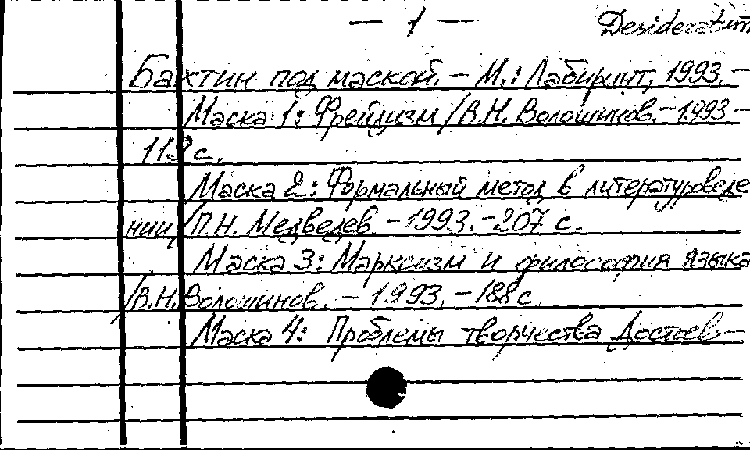 — 1 —
Desideratum
Бахтин под маской. – М.: Лабиринт, 1993. –
Маска 1: Фрейдизм / В.Н. Волошинов. – 1993 –
с.
Маска 2: Формальный метод в литературоведе
нии / П.Н. Медведев – 1993. – 207 с.
Маска 3: Марксизм и философия языка
/ В.Н. Волошинов. – 1993. – 188 с.
Маска 4: Проблемы творчества Достоев–